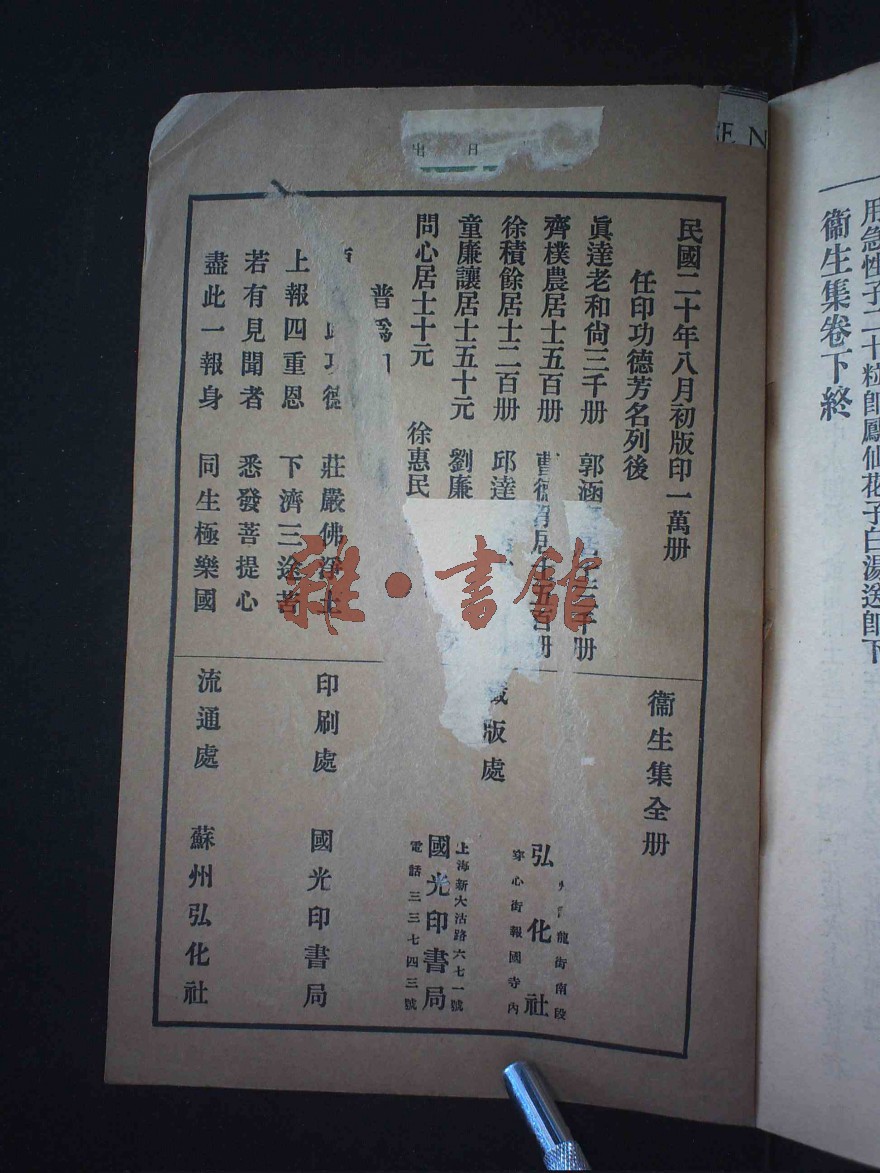 用急性子二十粒即鳳仙花子白湯送即下
衞生集卷下終
EN
出 日
民國二十年八月初版印一萬册
任印功德芳名列後
眞達老和尙三千册 郭涵 居士二千册
齊樸農居士五百册 曹 居士五百册
徐積餘居士二百册 邱達
童廉讓居士五十元 劉廉
問心居士十元 徐惠民
普爲
功德 莊嚴佛淨土
上報四重恩 下濟三途苦
若有見聞者 悉發菩提心
盡此一報身 同生極樂國
衞生集全册
藏版處
龍街南段
弘化社
穿心街報國寺內
上海新大沽路六七一號
國光印書局
電話三三七四三號
印刷處 國光印書局
流通處 蘇州弘化社
雜·書館